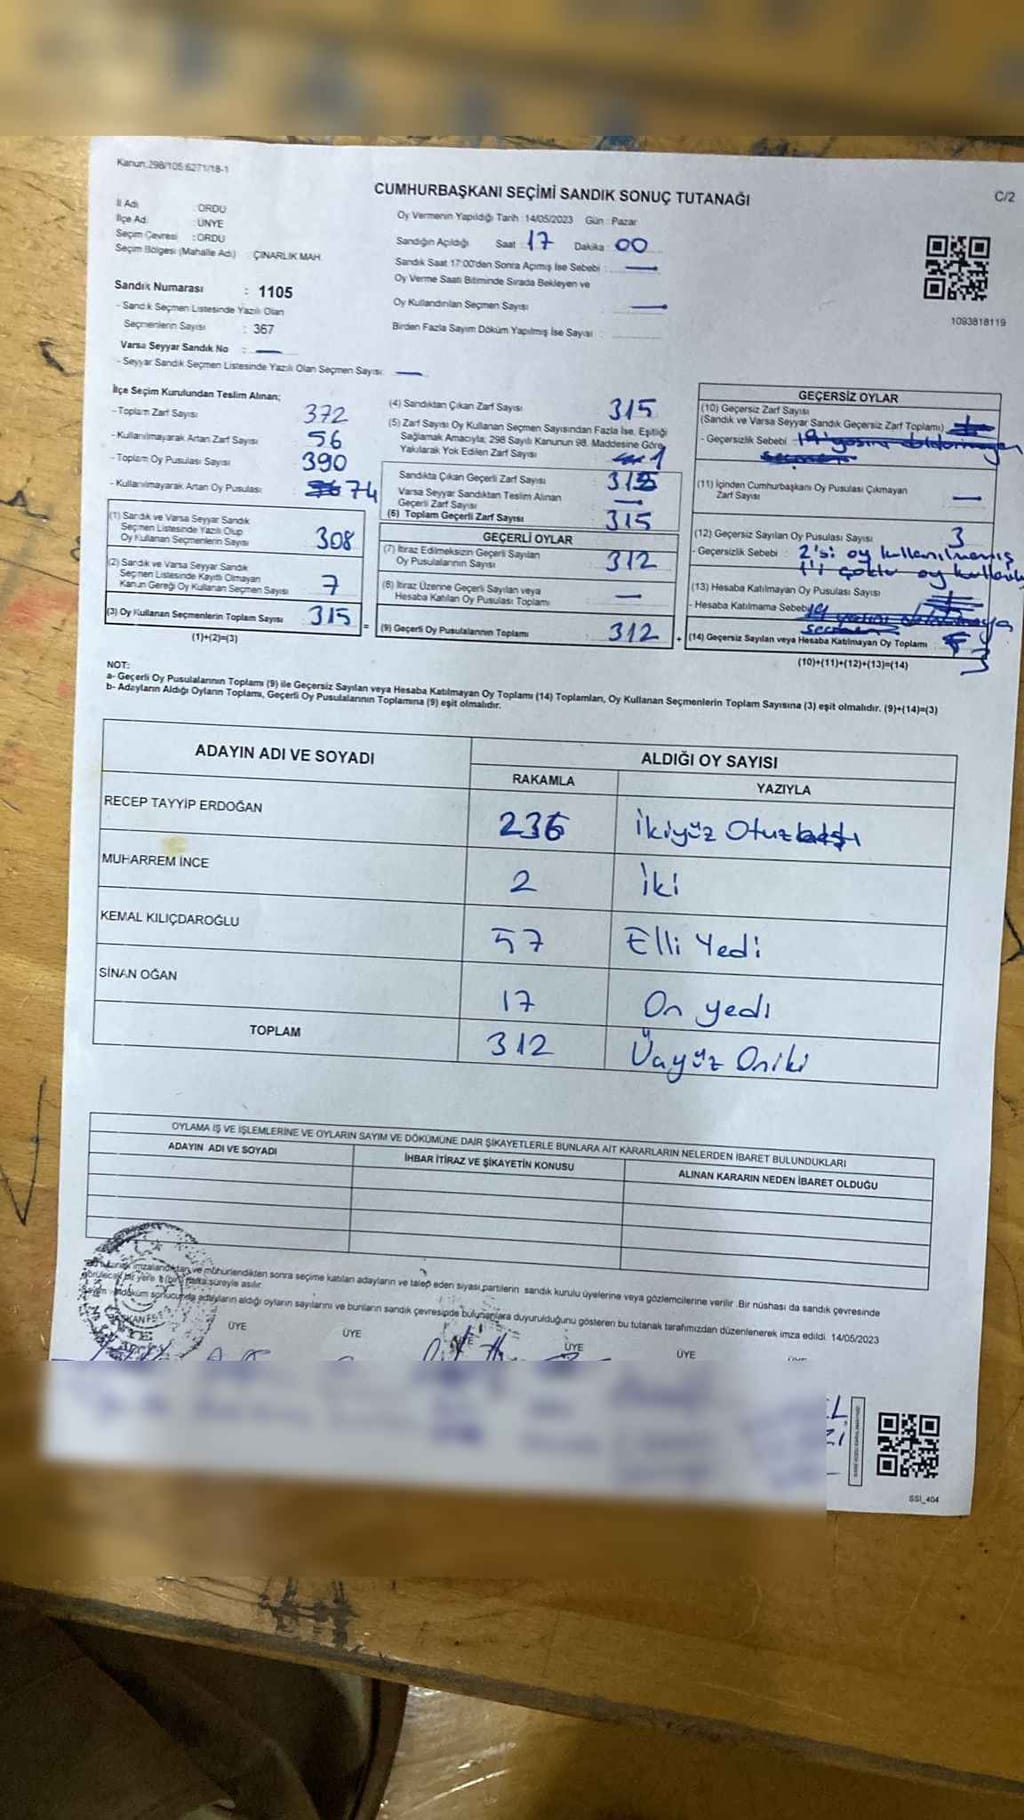 Kanun.298/105.6271/18-1
CUMHURBAŞKANI SEÇİMİ SANDIK SONUÇ TUTANAĞI
C/2
İl Adı : ORDU
İlçe Ad. : ÜNYE
Seçim Çevresi : ORDU
Seçim Bölgesi (Mahalle Adı) : ÇINARLIK MAH.
Oy Vermenin Yapıldığı Tarih :14/05/2023 Gün : Pazar
Sandığın Açıldığı Saat : 17 Dakika : 00
Sandık Saat 17:00'den Sonra Açımış İse Sebebi :
Oy Verme Saati Bitiminde Sırada Bekleyen ve
Oy Kullandırılan Seçmen Sayısı :
Birden Fazla Sayım Döküm Yapılmış İse Sayısı :
1093818119
Sandık Numarası : 1105
- Sandık Seçmen Listesinde Yazılı Olan
Seçmenlerin Sayısı : 367
Varsa Seyyar Sandık No :
- Seyyar Sandık Seçmen Listesinde Yazılı Olan Seçmen Sayısı:
İlçe Seçim Kurulundan Teslim Alınan;
- Toplam Zarf Sayısı : 372
- Kullanılmayarak Artan Zarf Sayısı : 56
- Toplam Oy Pusulası Sayısı : 390
- Kullanılmayarak Artan Oy Pusulası : 74
(1) Sandık ve Varsa Seyyar Sandık
Seçmen Listesinde Yazılı Olup
Oy Kullanan Seçmenlerin Sayısı 308
(2) Sandık ve Varsa Seyyar Sandık
Seçmen Listesinde Kayıtlı Olmayan
Kanun Gereği Oy Kullanan Seçmen Sayısı 7
(3) Oy Kullanan Seçmenlerin Toplam Sayısı 315
(1)+(2)=(3)
(4) Sandıktan Çıkan Zarf Sayısı 315
(5) Zarf Sayısı Oy Kullanan Seçmen Sayısından Fazla İse, Eşitliği
Sağlamak Amacıyla; 298 Sayılı Kanunun 98. Maddesine Göre
Yakılarak Yok Edilen Zarf Sayısı 1
Sandıkta Çıkan Geçerli Zarf Sayısı 315
Varsa Seyyar Sandıktan Teslim Alınan
Geçerli Zarf Sayısı
(6) Toplam Geçerli Zarf Sayısı 315
GEÇERLİ OYLAR
(7) İtiraz Edilmeksizin Geçerli Sayılan
Oy Pusulalarının Sayısı 312
(8) İtiraz Üzerine Geçerli Sayılan veya
Hesaba Katılan Oy Pusulası Toplamı
= (9) Geçerli Oy Pusulalarının Toplamı 312 +
GEÇERSİZ OYLAR
(10) Geçersiz Zarf Sayısı
(Sandık ve Varsa Seyyar Sandık Geçersiz Zarf Toplamı)
- Geçersizlik Sebebi :
(11) İçinden Cumhurbaşkanı Oy Pusulası Çıkmayan
Zarf Sayısı
(12) Geçersiz Sayılan Oy Pusulası Sayısı 3
- Geçersizlik Sebebi : 2'si oy kullanılmamış
1'i çoklu oy
(13) Hesaba Katılmayan Oy Pusulası Sayısı
- Hesaba Katılmama Sebebi
(14) Geçersiz Sayılan veya Hesaba Katılmayan Oy Toplamı 3
(10)+(11)+(12)+(13)=(14)
NOT:
a- Geçerli Oy Pusulalarının Toplamı (9) ile Geçersiz Sayılan veya Hesaba Katılmayan Oy Toplamı (14) Toplamları, Oy Kullanan Seçmenlerin Toplam Sayısına (3) eşit olmalıdır. (9)+(14)=(3)
b- Adayların Aldığı Oyların Toplamı, Geçerli Oy Pusulalarının Toplamına (9) eşit olmalıdır.
ADAYIN ADI VE SOYADI ALDIĞI OY SAYISI
RAKAMLA YAZIYLA
RECEP TAYYİP ERDOĞAN 236 İkiyüz Otuz
MUHARREM İNCE 2 İki
KEMAL KILIÇDAROĞLU 57 Elli Yedi
SİNAN OĞAN 17 On yedi
TOPLAM 312 Üçyüz Oniki
OYLAMA İŞ VE İŞLEMLERİNE VE OYLARIN SAYIM VE DÖKÜMÜNE DAİR ŞİKAYETLERLE BUNLARA AİT KARARLARIN NELERDEN İBARET BULUNDUKLARI
ADAYIN ADI VE SOYADI İHBAR İTİRAZ VE ŞİKAYETİN KONUSU ALINAN KARARIN NEDEN İBARET OLDUĞU
imzalandıktan ve mühürlendikten sonra seçime katılan adayların ve talep eden siyası partilerin sandık kurulu üyelerine veya gözlemcilerine verilir. Bir nüshası da sandık çevresinde
görülecek bir yere 1 (bir) hafta süreyle asılır.
döküm sonucunda adayların aldığı oyların sayılarını ve bunların sandık çevresinde bulunanlara duyurulduğunu gösteren bu tutanak tarafımızdan düzenlenerek imza edildi. 14/05/2023
ÜYE ÜYE ÜYE ÜYE ÜYE
SSI_404